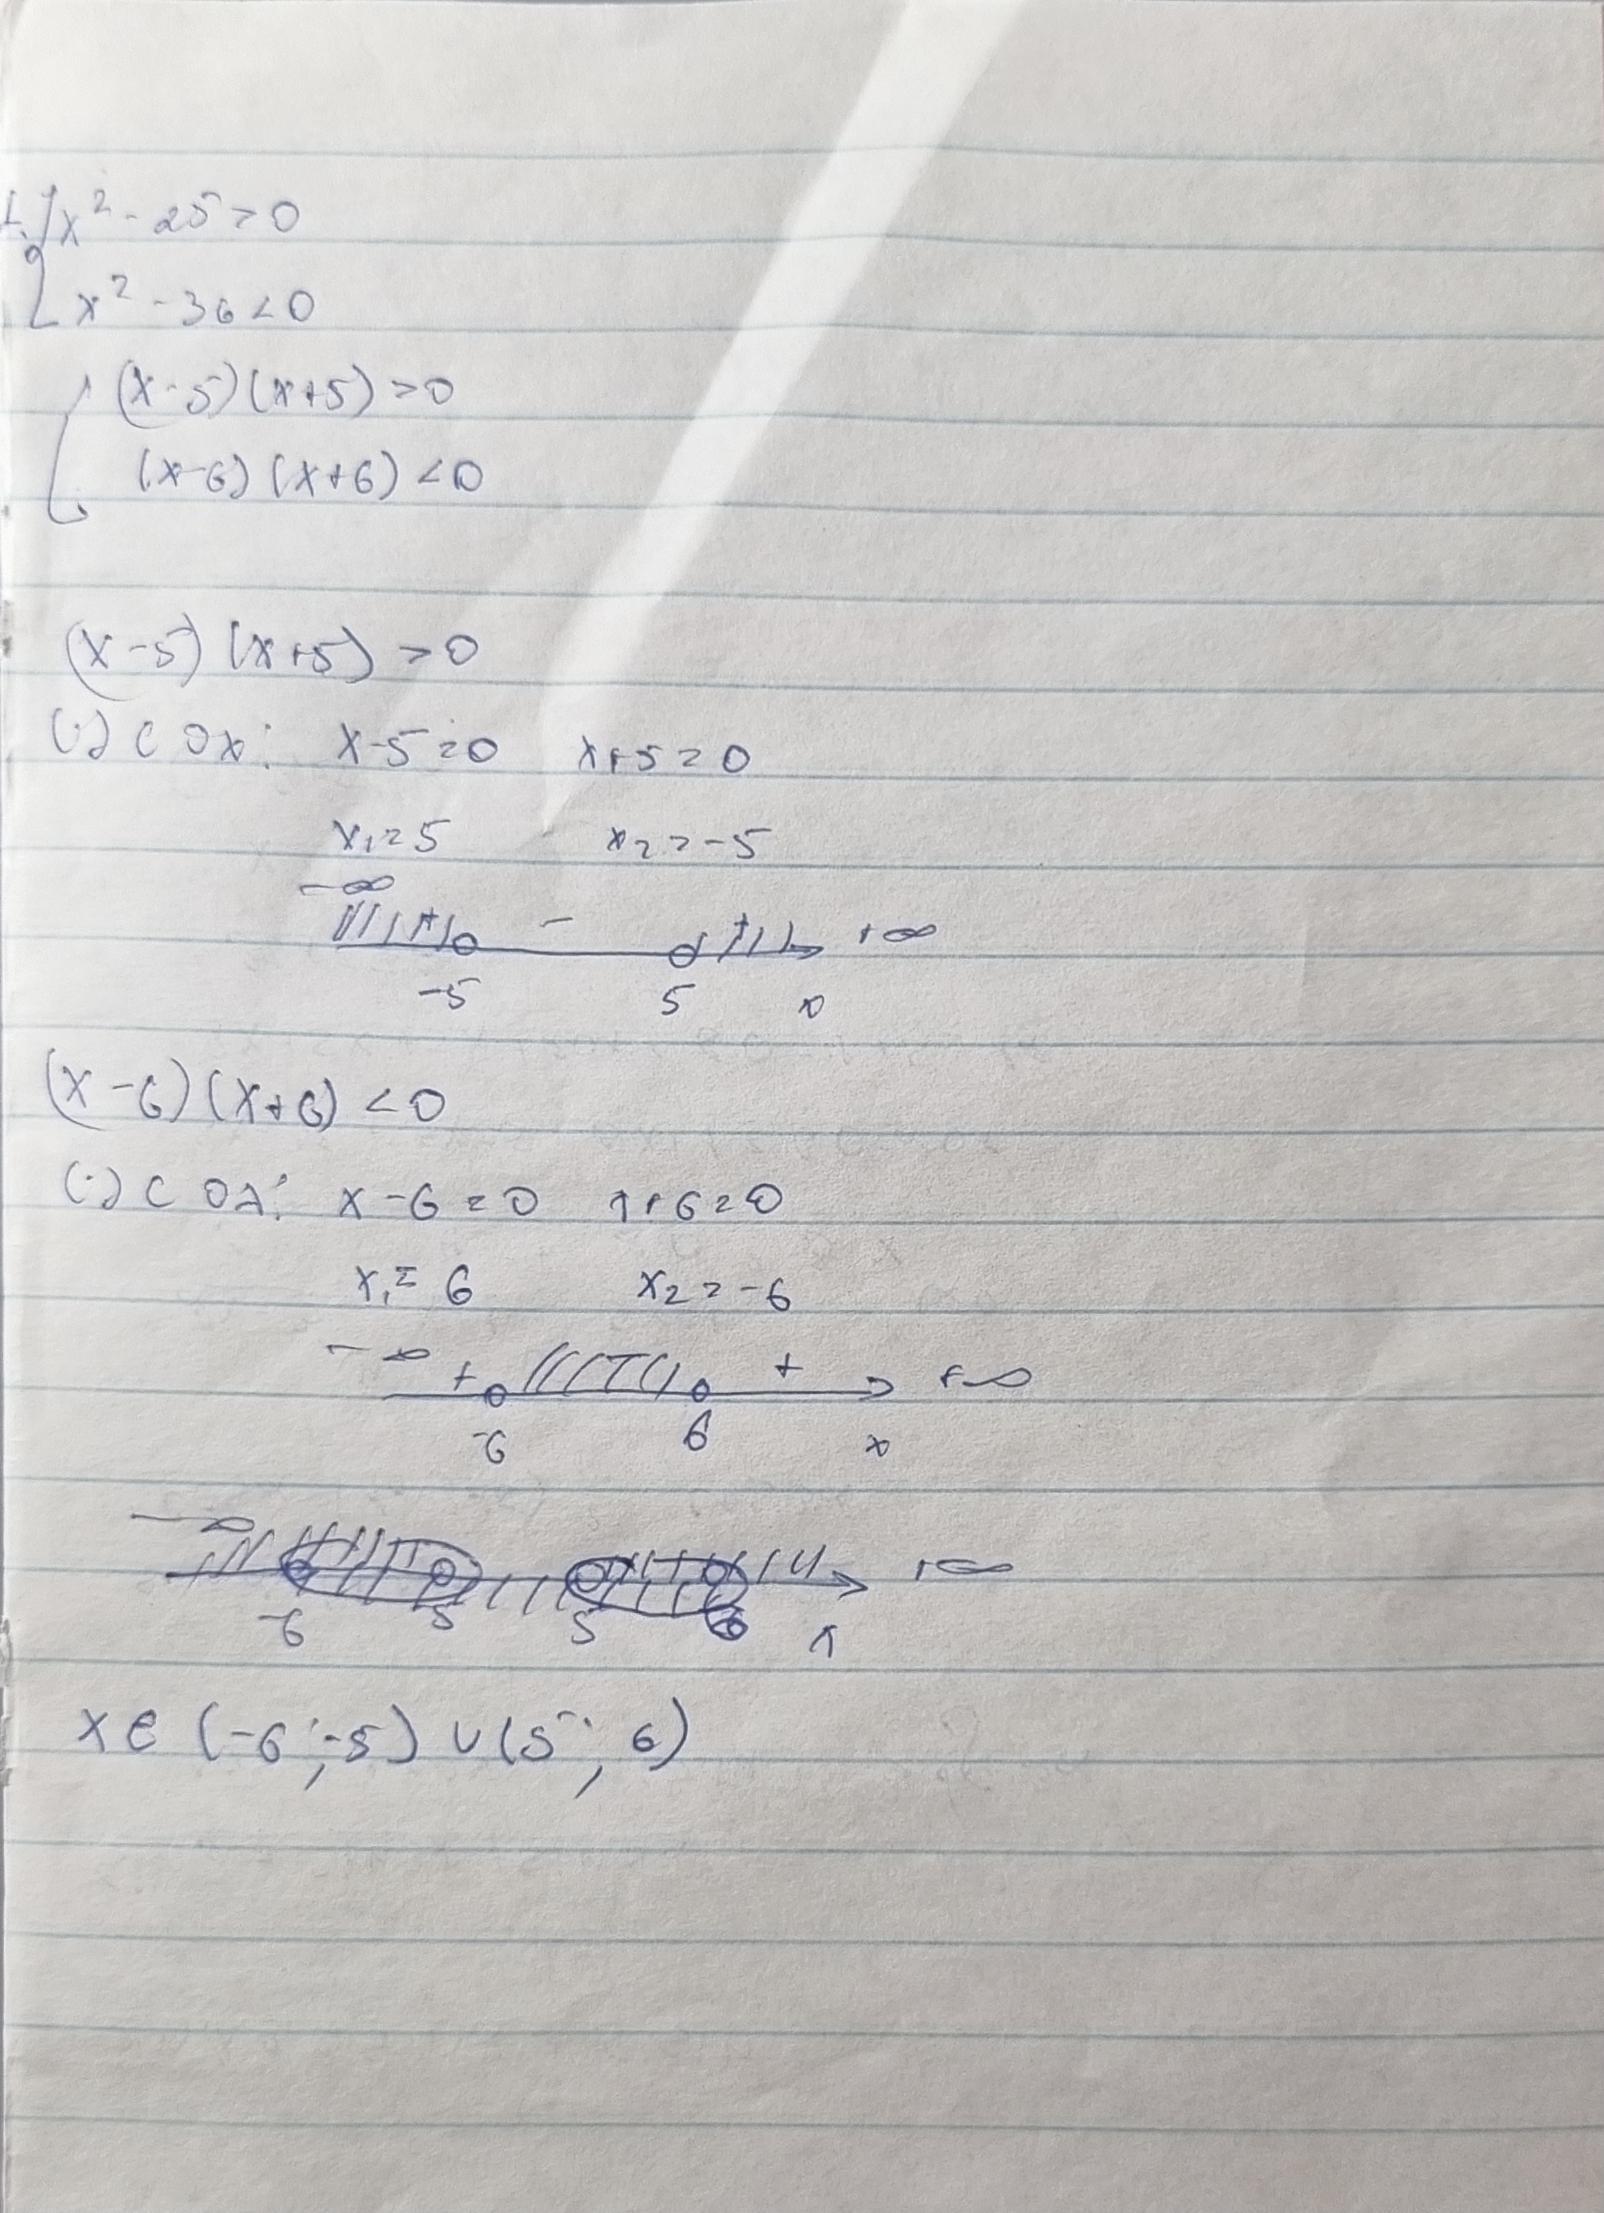 1. { x² - 25 > 0
{ x² - 36 < 0
{ (x-5)(x+5) > 0
(x-6)(x+6) < 0
(x-5)(x+5) > 0
(·) с Ox: x-5=0 x+5=0
x₁=5 x₂=-5
-∞ + - + +∞
-5 5 x
(x-6)(x+6) < 0
(·) с Ox: x-6=0 x+6=0
x₁=6 x₂=-6
-∞ + - + +∞
-6 6 x
-∞ +∞
-6 -5 5 6 x
x ∈ (-6;-5) ∪ (5; 6)